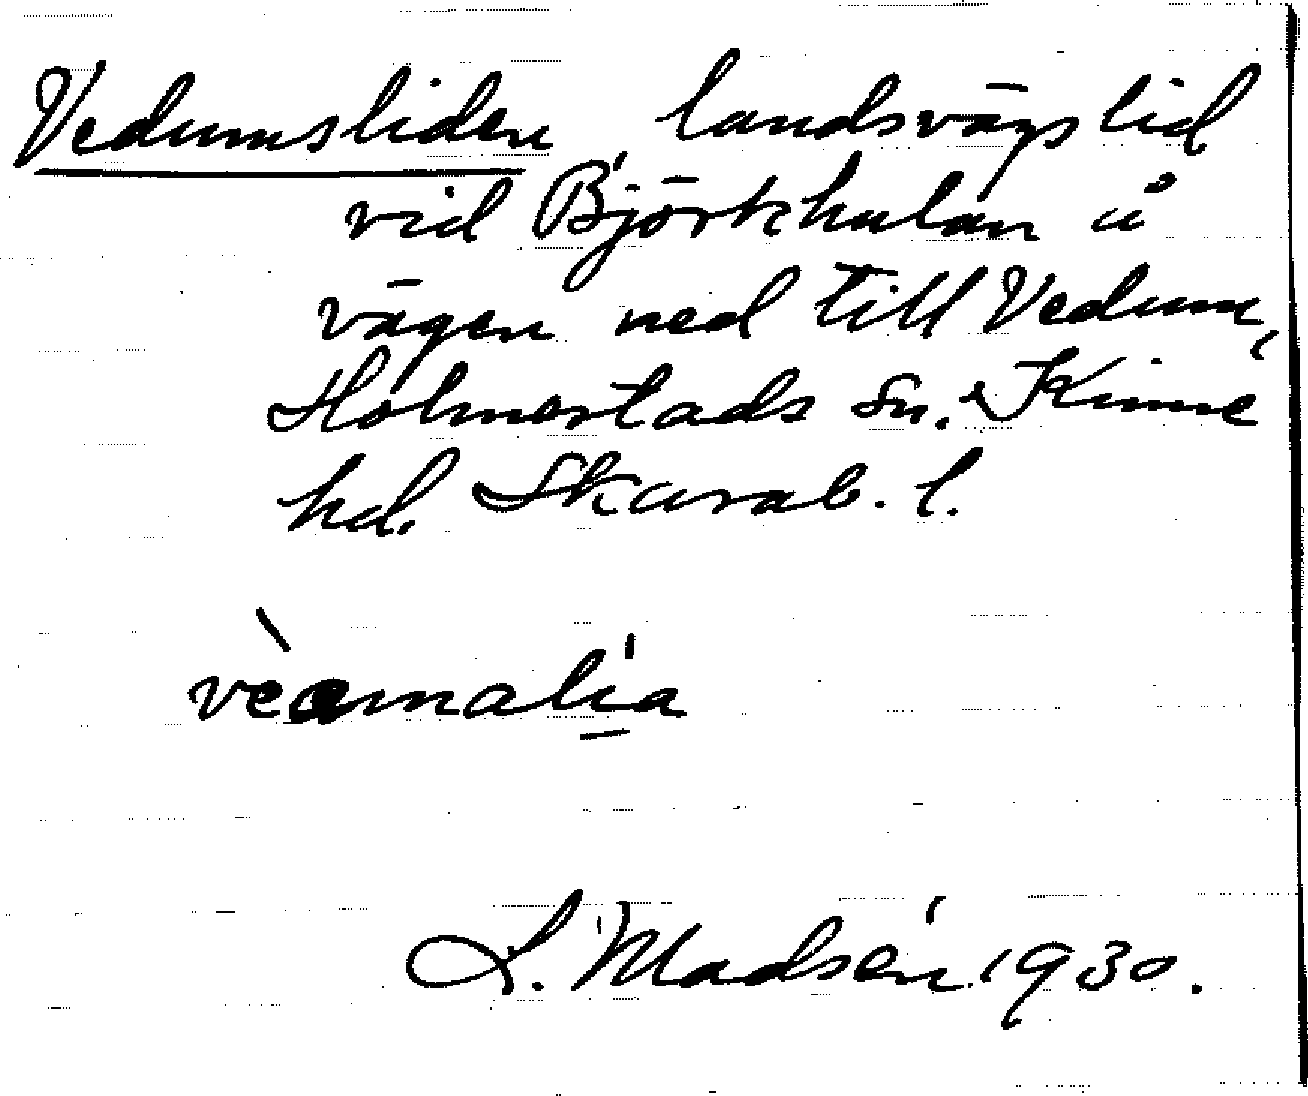 Vedumsliden landsvägslid
vid Björkhulan å
vägen ned till Vedum,
Holmestads sn. Kinne
hd. Skarab. l.
L. Madsén 1930.